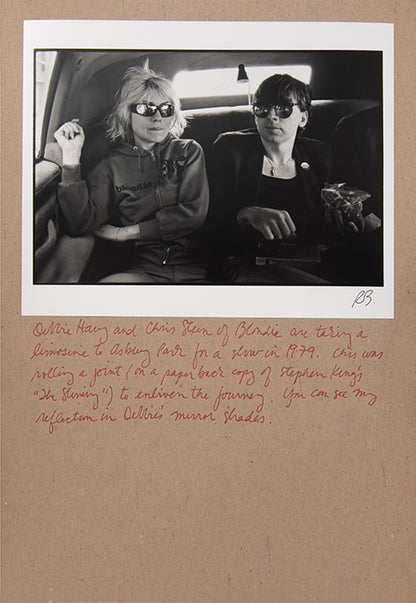 blondie
RB.
Debbie Harry and Chris Stein of Blondie are taking a
limosine to Asbury Park for a show in 1979. Chris was
rolling a joint (on a paperback copy of Stephen King's
"The Shining") to enliven the journey. You can see my
reflection in Debbie's mirror shades.